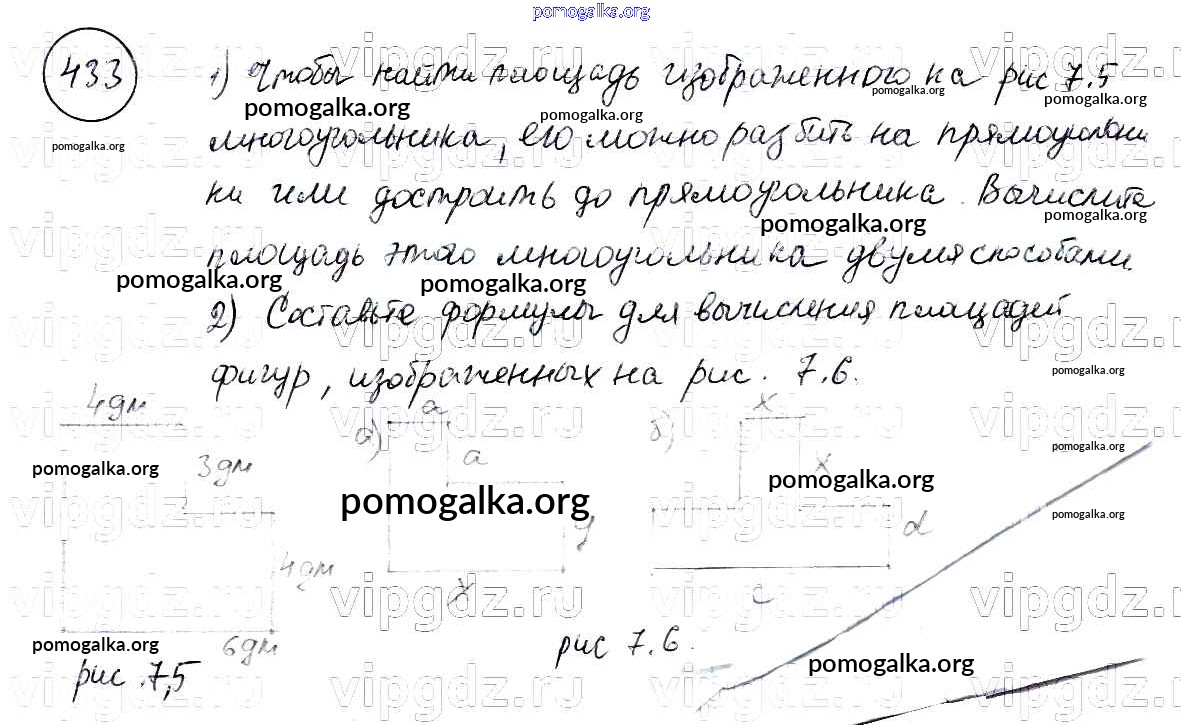 pomogalka.org
433
1) Чтобы найти площадь изображенного на рис 7.5
многоугольника, его можно разбить на прямоугольни
ки или достроить до прямоугольника. Вычислите
площадь этого многоугольника двумя способами.
2) Составьте формулы для вычисления площадей
фигур, изображенных на рис. 7.6.
4дм
3дм
4дм
6дм
рис .7,5
а)
a
a
y
x
б)
x
x
d
c
рис 7.6.
vipgdz.ru
pomogalka.org